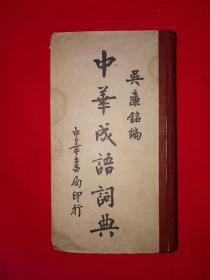 吳廉銘編
中華成語詞典
中華書局印行